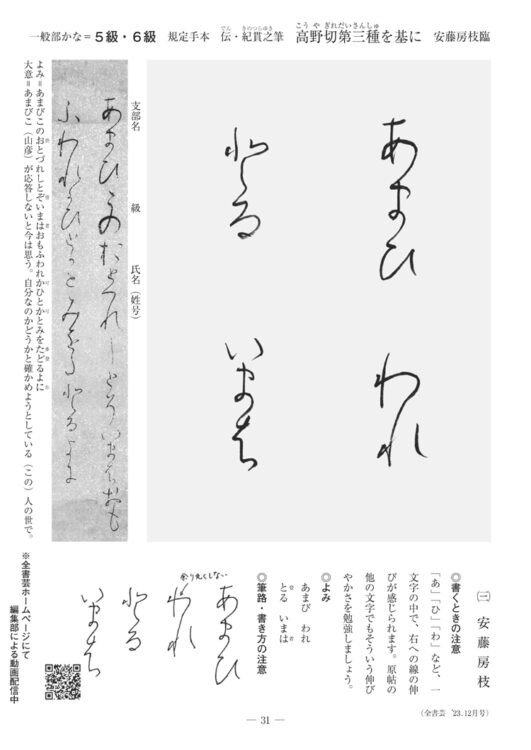 一般部かな＝５級・６級　規定手本　伝・紀貫之筆　高野切第三種を基に　安藤房枝臨
でん　きのつらゆき　こうやぎれだいさんしゅ
あまひ　われ
とる　いまは
支部名　級　氏名（姓号）
あまひこのおとつれしとそいまはおも
ふわれかひとかとみをたとるよに
よみ＝あまびこのおとづれしとぞいまはおもふわれかひとかとみをたどるよに
大意＝あまびこ（山彦）が応答しないと今は思う。自分なのかどうかと確かめようとしている（この）人の世で。
㈢　安藤房枝
◎書くときの注意
「あ」「ひ」「わ」など、一
文字の中で、右への線の伸
びが感じられます。原帖の
他の文字でもそういう伸び
やかさを勉強しましょう。
◎よみ
あまび　われ
とる　いまは
◎筆路・書き方の注意
あまひ
余り丸くしない
われ
とる
いまは
※全書芸ホームページにて
編集部による動画配信中
（全書芸　’23.12月号）
— 31 —